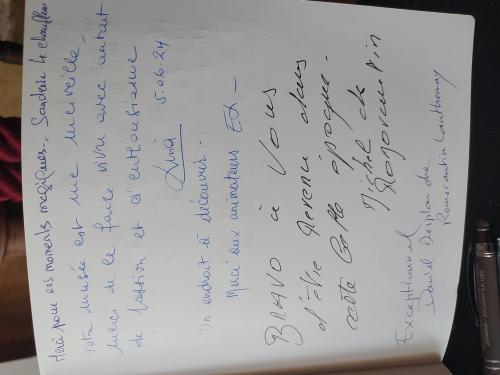 Merci pour ces moments magiques, Sandrine le chauffeur
votre musée est une merveille,
merci de le faire vivre avec autant
de passion et d'enthousiasme
5.06.24
Un endroit à découvrir.
Merci aux animateurs
BRAVO à Vous
d'être devenu dans
cette belle époque.
Michel de
Romorantin
Exceptionnel
Daniel
Romorantin Lanthenay